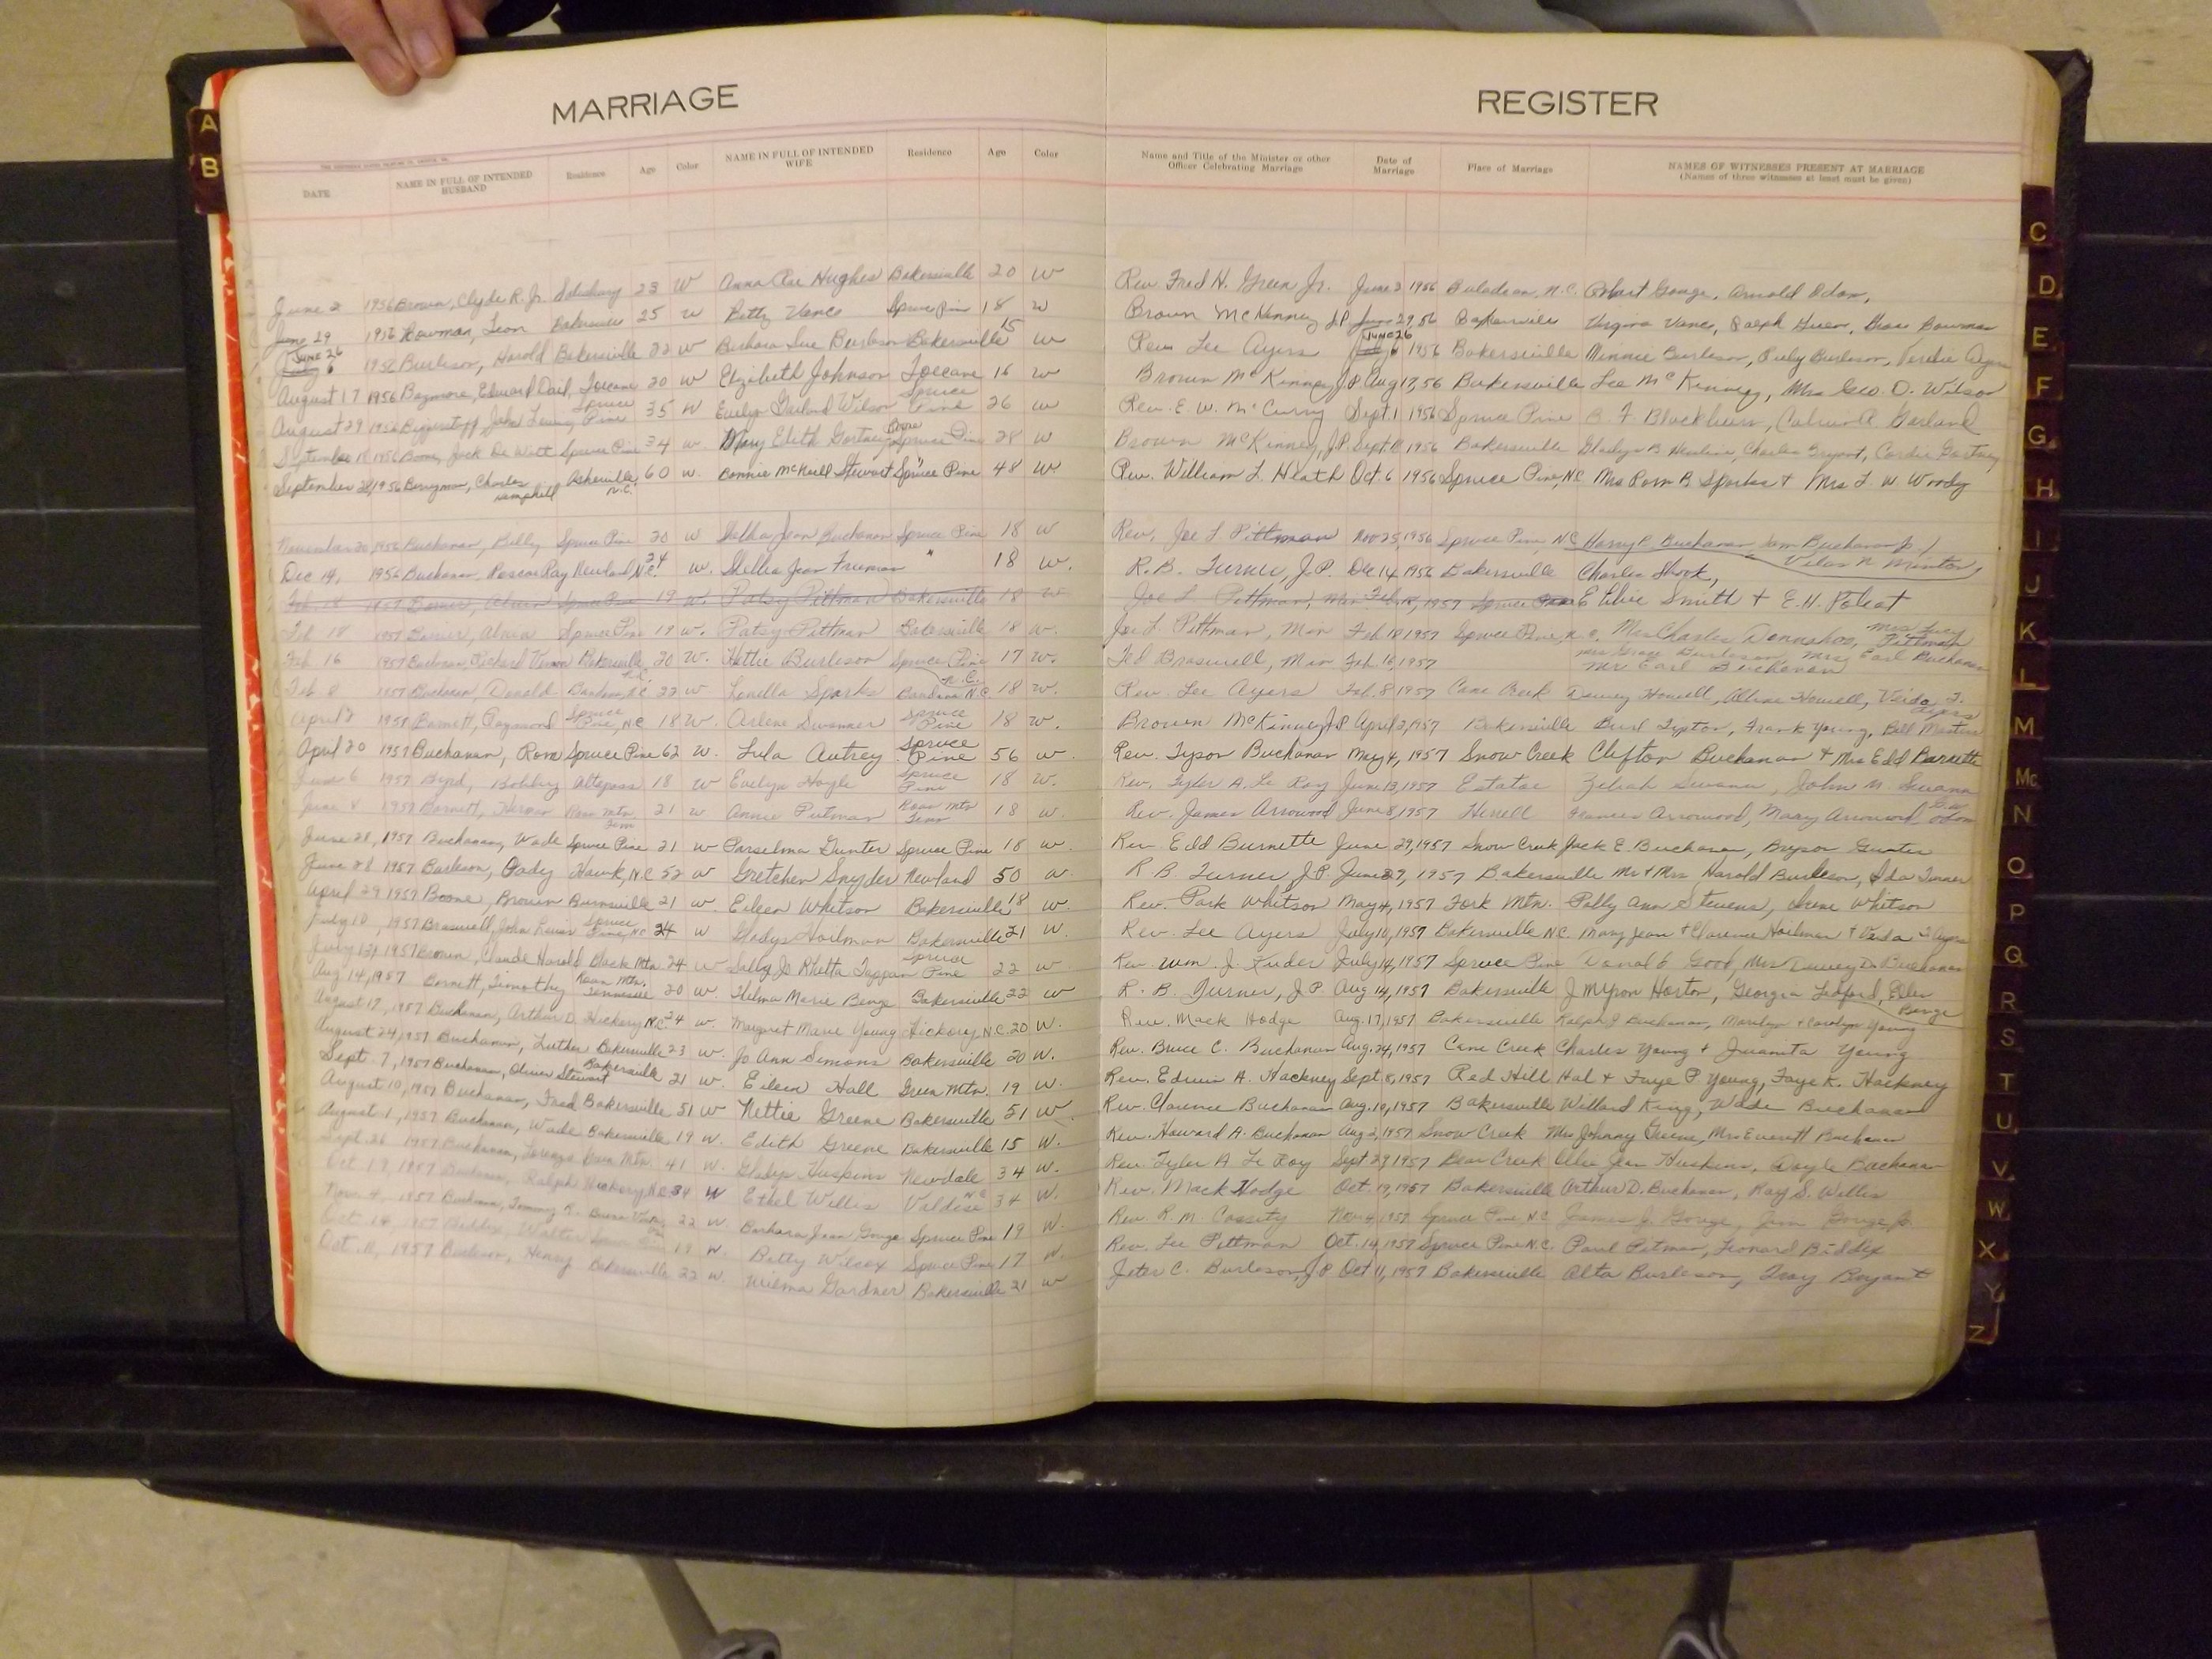 MARRIAGE REGISTER
DATE NAME IN FULL OF INTENDED HUSBAND Residence Age Color NAME IN FULL OF INTENDED WIFE Residence Age Color Name and Title of the Minister or other Officer Celebrating Marriage Date of Marriage Place of Marriage NAMES OF WITNESSES PRESENT AT MARRIAGE (Names of three witnesses at least must be given)
June 2 1956 Brown, Clyde R. Jr. Salisbury 23 W Anna Rae Hughes Bakersville 20 W Rev Fred H. Green Jr. June 2 1956 Buladean, N.C. Robert Gouge, Arnold Odom,
June 29 1956 Bowman, Leon Bakersville 25 W Betty Vance Spruce Pine 18 W Brown McKinney JP June 29, 56 Bakersville Virginia Vance, Ralph Green, Bowman
JUNE 26 July 6 1956 Burleson, Harold Bakersville 22 W Barbara Sue Burleson Bakersville 15 W Rev Lee Ayers JUNE 26 1956 Bakersville Minnie Burleson, Ruby Burleson, Ayers
August 17 1956 Edward Dail, Toecane 20 W Elizabeth Johnson Toecane 16 W Brown McKinney J.P. Aug 17, 56 Bakersville Lee McKinney, Mrs Geo. D. Wilson
August 29 1956 Biggerstaff, John Spruce Pine 35 W Evelyn Garland Wilson Spruce Pine 26 W Rev. E. W. McCurry Sept 1 1956 Spruce Pine B. F. Blackburn, Calvin R. Garland
September 18 1956 Boone, Jack De Witt Spruce Pine 34 W. Mary Edith Gortney Boone Spruce Pine 28 W Brown McKinney, J.P. Sept. 18 1956 Bakersville Gladys B. Charles Bryant, Cordie Gortney
September 28, 1956 Berryman, Charles Hemphill Asheville N.C. 60 W. Bonnie McNeill Stewart Spruce Pine 48 W Rev. William L. Heath Oct. 6 1956 Spruce Pine, N.C. Mrs B. Sparks + Mrs L. W. Woody
November 20, 1956 Buchanan, Billy Spruce Pine 20 W Jean Buchanan Spruce Pine 18 W Rev, Joe L Pittman Nov 25, 1956 Spruce Pine, N.C. Harry E. Buchanan, Sam Buchanan Jr., Velas N Minton
Dec 14, 1956 Buchanan, Roscoe Ray Newland N.C. 24 W. Shelba Jean Freeman " 18 W. R. B. Turner, J.P. Dec 14 1956 Bakersville Charles Shook,
Feb 18 1957 Alvin Spruce Pine 19 W. Patsy Pittman Bakersville 18 W Joe L Pittman, Min Feb. 18, 1957 Spruce Pine Ethie Smith + E.H. Poteat
Feb 18 1957 Alvin Spruce Pine 19 W. Patsy Pittman Bakersville 18 W. Joe L Pittman, Min Feb 18 1957 Spruce Pine, N.C. Mrs Charles Donnahoo, Mrs Lucy Pittman
Feb. 16 1957 Buchanan, Richard Vernon Bakersville 20 W. Hettie Burleson Spruce Pine N.C. 17 W. Ted Braswell, Min Feb. 16, 1957 Mrs Grace Burleson, Mrs Earl Buchanan Mr Earl Buchanan
Feb 8 1957 Buchanan, Donald N.C. 22 W Louella Sparks N.C. 18 W. Rev. Lee Ayers Feb. 8 1957 Cane Creek Dewey Howell, Howell, T. Ayers
April 2 1957 Barnett, Raymond Spruce Pine, N.C. 18 W. Arlene Swanner Spruce Pine 18 W. Brown McKinney J.P. April 2, 1957 Bakersville Burl Tipton, Frank Young, Bill Masters
April 20 1957 Buchanan, Rome Spruce Pine 62 W. Lula Autrey Spruce Pine 56 W Rev. Tyson Buchanan May 4, 1957 Snow Creek Clifton Buchanan + Mrs Edd Barnette
June 6 1957 Byrd, Bobby Altapass 18 W Evelyn Hoyle Spruce Pine 18 W. Rev, Tyler A. Le Roy June 13, 1957 Estatoe Swann, John M. Swann
June 8 1957 Barnett, Roan Mtn Tenn 21 W Annie Pitman Roan Mtn Tenn 18 W Rev. James Arrowood June 8, 1957 Frances Arrowood, Mary Arrowood, Odom
June 28, 1957 Buchanan, Wade Spruce Pine 21 W Parselma Gunter Spruce Pine 18 W. Rev Edd Burnette June 29, 1957 Snow Creek Jack E. Buchanan, Bryson Gunter
June 28 1957 Burleson, Hawk, N.C. 52 W Gretchen Snyder Newland 50 W R. B. Turner J.P. June 29, 1957 Bakersville Mr + Mrs Harold Burleson, Ida Turner
April 29 1957 Boone, Brown Burnsville 21 W. Eileen Whitson Bakersville 18 W. Rev. Park Whitson May 4, 1957 Fork Mtn. Polly Ann Stevens, Irene Whitson
July 10, 1957 Braswell, John Spruce Pine, N.C. 24 W Gladys Hoilman Bakersville 21 W. Rev. Lee Ayers July 10, 1957 Bakersville N.C. Mary Jean + Clarence Hoilman + T Ayers
July 12, 1957 Brown, Claude Harold Black Mtn. 24 W Sally Jo Rhetta Tappan Spruce Pine 22 W Rev. Wm. J. Kuder July 14, 1957 Spruce Pine Donald Good, Mrs Dewey D. Buchanan
Aug 14, 1957 Barnett, Timothy Roan Mtn. Tennessee 20 W. Thelma Marie Benge Bakersville 22 W R. B. Turner, J.P. Aug 14, 1957 Bakersville J Myron Horton, Georgia Ledford, Ellen Benge
August 17, 1957 Buchanan, Arthur D. Hickory N.C. 24 W. Margaret Marie Young Hickory, N.C. 20 W. Rev. Mack Hodge Aug. 17, 1957 Bakersville Ralph J Buchanan, Marilyn + Carolyn Young
August 24, 1957 Buchanan, Luther Bakersville 23 W. Jo Ann Simons Bakersville 20 W. Rev. Bruce C. Buchanan Aug. 24, 1957 Cane Creek Charles Young + Juanita Young
Sept. 7, 1957 Buchanan, Oliver Stewart Bakersville 21 W. Eileen Hall Green Mtn. 19 W. Rev. Edwin A. Hackney Sept 8, 1957 Red Hill Hal + Faye P Young, Faye K. Hackney
August 10, 1957 Buchanan, Fred Bakersville 51 W Nettie Greene Bakersville 51 W. Rev. Clarence Buchanan Aug. 10, 1957 Bakersville Willard King, Wade Buchanan
August 1, 1957 Buchanan, Wade Bakersville 19 W. Edith Greene Bakersville 15 W. Rev. Howard A. Buchanan Aug 2, 1957 Snow Creek Mrs Johnny Greene, Mrs Everett Buchanan
Sept. 26 1957 Buchanan, Green Mtn. 41 W. Gladys Huskins Newdale 34 W. Rev. Tyler A Le Roy Sept 29, 1957 Bear Creek Jean Huskins, Doyle Buchanan
Oct 19, 1957 Ralph Hickory N.C. 34 W Ethel Willis Valdese N.C. 34 W. Rev. Mack Hodge Oct. 19, 1957 Bakersville Arthur D. Buchanan, Ray S. Willis
Nov. 4, 1957 Buchanan, Tommy R. 22 W. Barbara Jean Gouge Spruce Pine 19 W. Rev. R. M. Cassity Nov. 4, 1957 Spruce Pine, N.C. James J. Gouge, Jim Gouge Jr.
Oct 14, 1957 Biddix, Walter 19 W. Betty Wilcox Spruce Pine 17 W. Rev. Lee Pittman Oct. 14, 1957 Spruce Pine N.C. Paul Pitman, Leonard Biddix
Oct. 11, 1957 Henry Bakersville 22 W. Wilma Gardner Bakersville 21 W Jeter C. Burleson, J.P. Oct 11, 1957 Bakersville Alta Burleson, Troy Bryant
A
B
C
D
E
F
G
H
I
J
K
L
M
Mc
N
O
P
Q
R
S
T
U
V
W
X
Y
Z